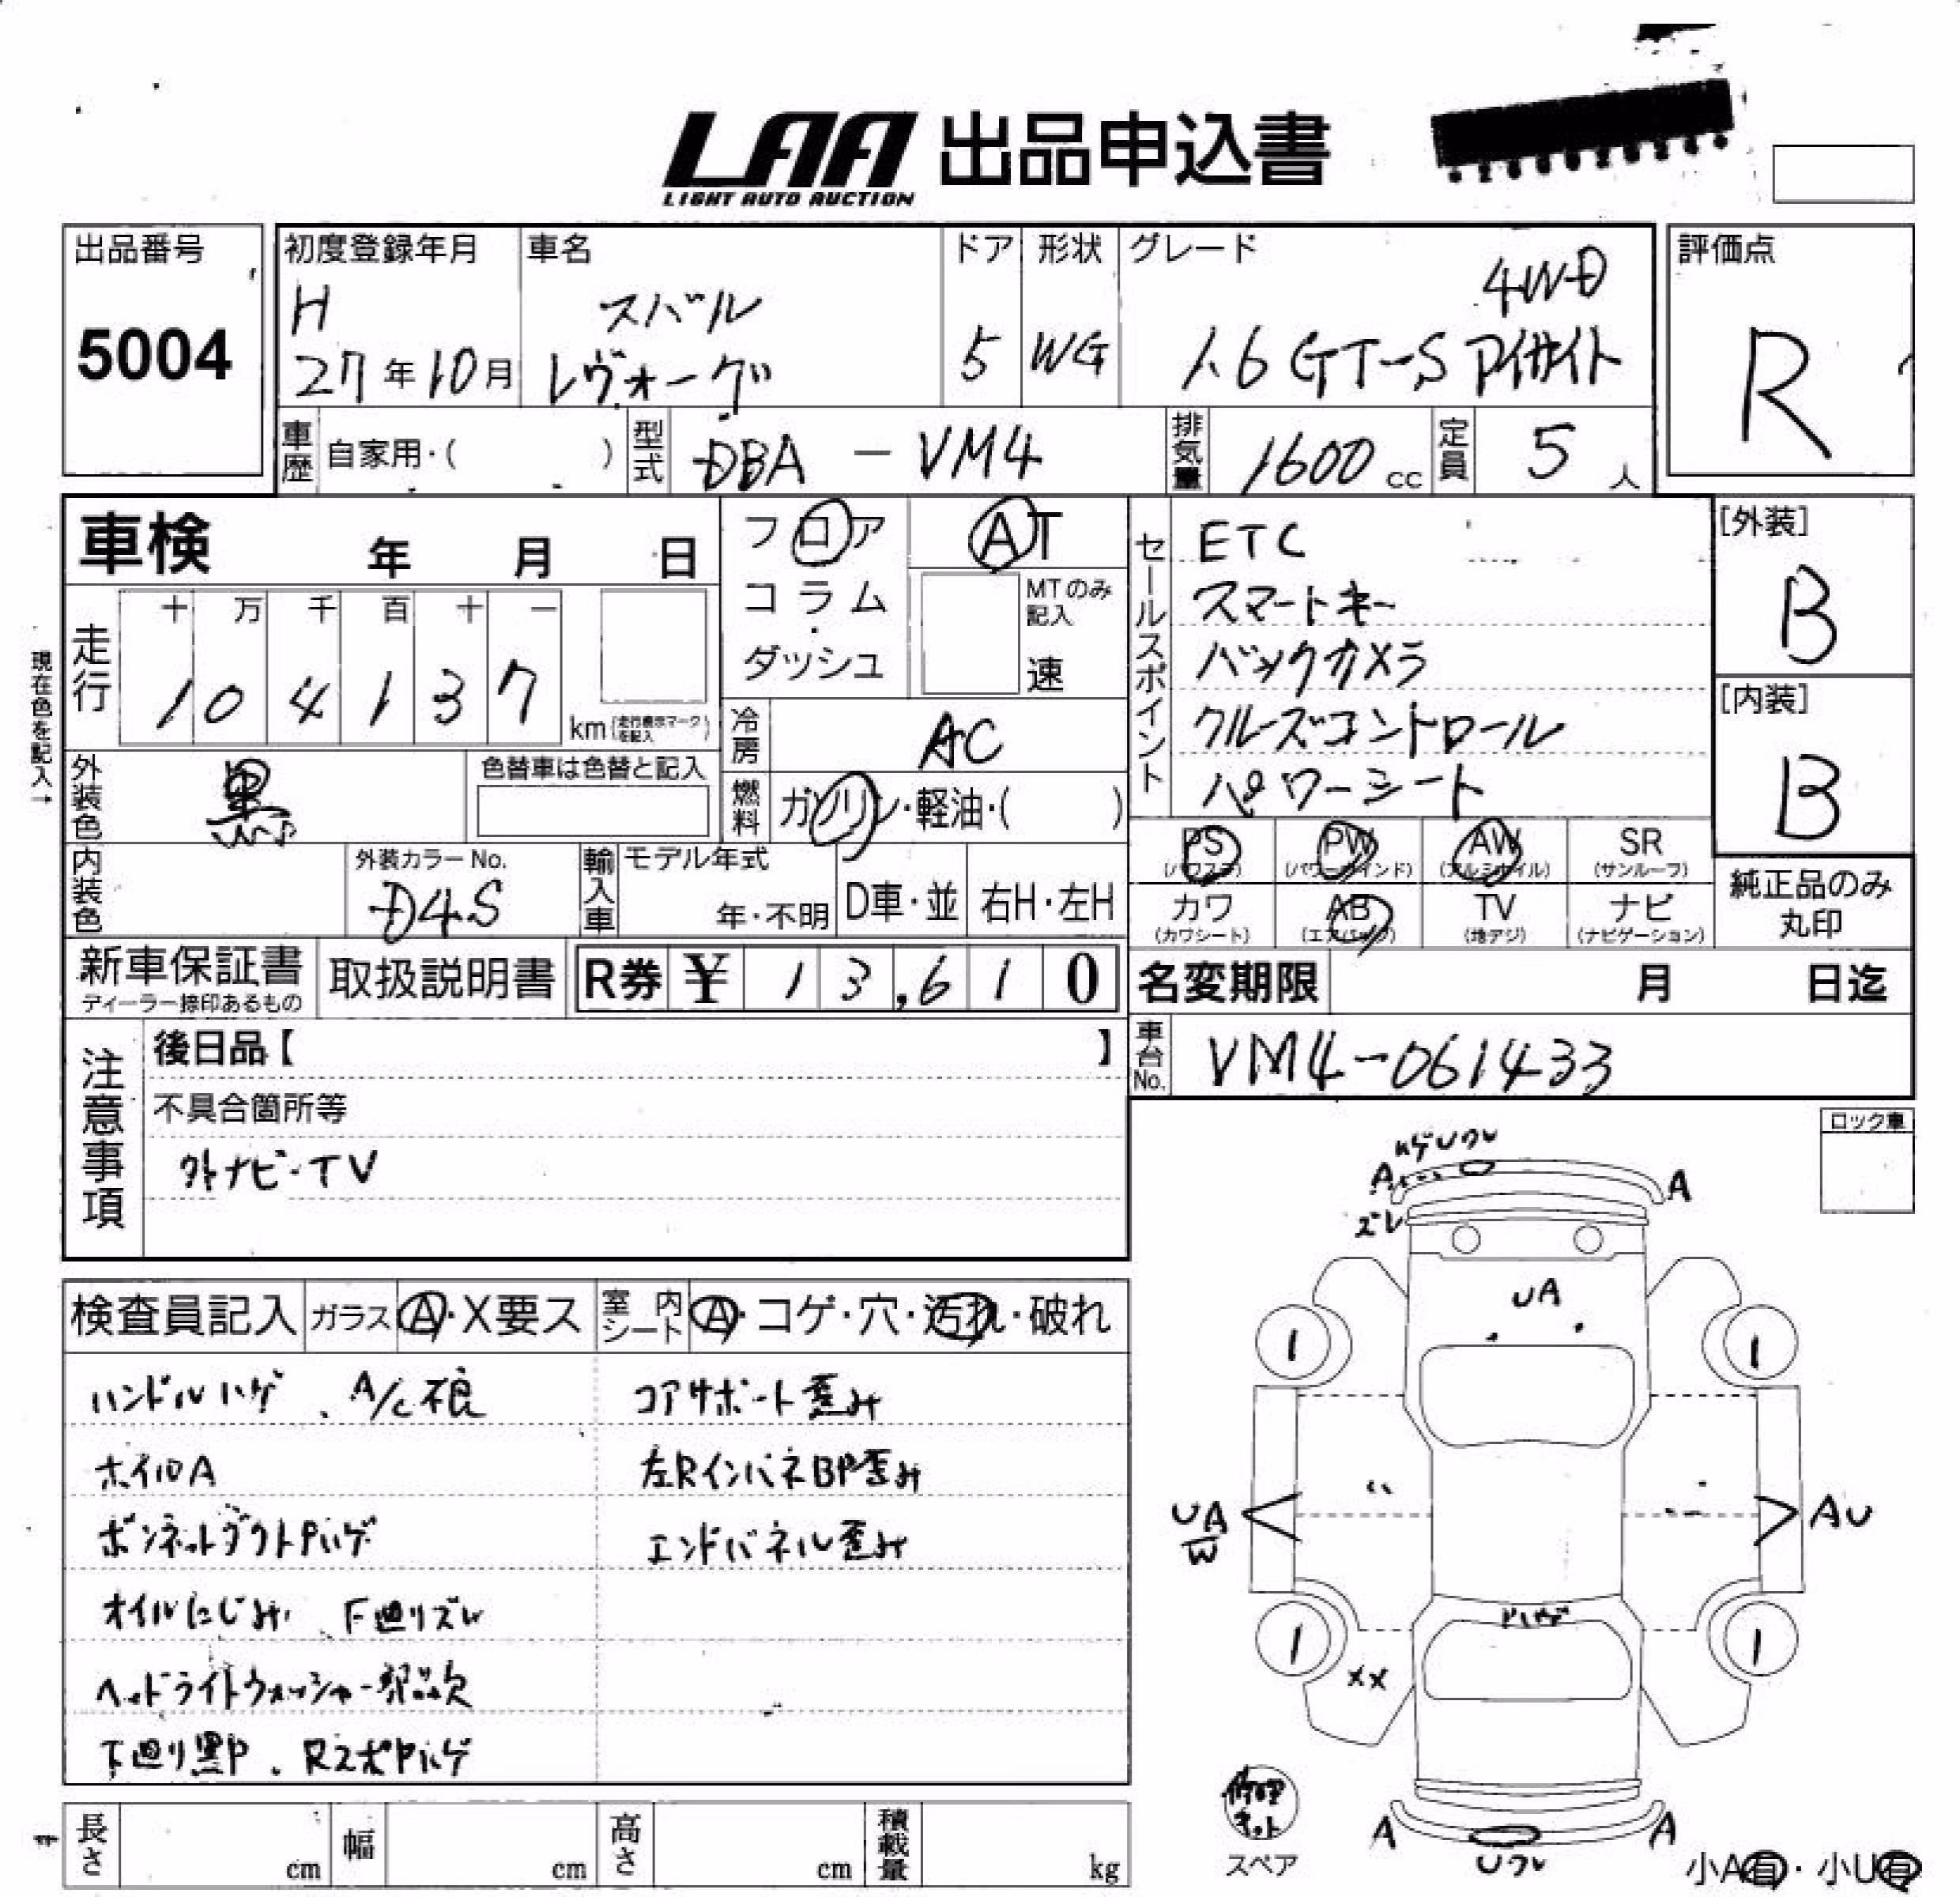 LAA 出品申込書
LIGHT AUTO AUCTION
出品番号
5004
初度登録年月
H
27年10月
車名
スバル
レヴォーグ
ドア
5
形状
WG
グレード
4WD
1.6GT-S アイサイト
評価点
R
車歴 自家用・( )
型式 DBA - VM4
排気量 1600 cc
定員 5 人
車検 年 月 日
フロア
コラム
・
ダッシュ
AT
MTのみ
記入
速
セールスポイント
ETC
スマートキー
バックカメラ
クルーズコントロール
パワーシート
[外装]
B
[内装]
B
現在色を記入→
走行
十 万 千 百 十 一
1 0 4 1 3 7
km (走行表示マークを記入)
冷房 AC
外装色 黒
色替車は色替と記入
燃料 ガソリン・軽油・( )
PS (パワステ)
PW (パワーウインド)
AW (アルミホイル)
SR (サンルーフ)
カワ (カワシート)
AB (エアバッグ)
TV (地デジ)
ナビ (ナビゲーション)
純正品のみ
丸印
内装色
外装カラーNo.
D4S
輸入車
モデル年式
年・不明
D車・並
右H・左H
新車保証書
ディーラー捺印あるもの
取扱説明書
R券 ¥ 1 3,6 1 0
名変期限 月 日迄
車台No. VM4-061433
注意事項
後日品【 】
不具合箇所等
外ナビ・TV
ロック車
検査員記入
ガラス A・X要ス
室内シート A・コゲ・穴・汚れ・破れ
ハンドルハゲ、A/C不良
ホイルA
ボンネットダクトPハゲ
オイルにじみ、下廻りズレ
ヘッドライトウォッシャー部品欠
下廻り黒P、RスポPハゲ
コアサポート歪み
左RインパネBP歪み
エンドパネル歪み
ハゲUワレ
A
A
ズレ
UA
1
1
UA
W
AU
Pハゲ
1
1
XX
修理
キット
スペア
A
A
Uワレ
小A有・小U有
長さ cm
幅 cm
高さ cm
積載量 kg